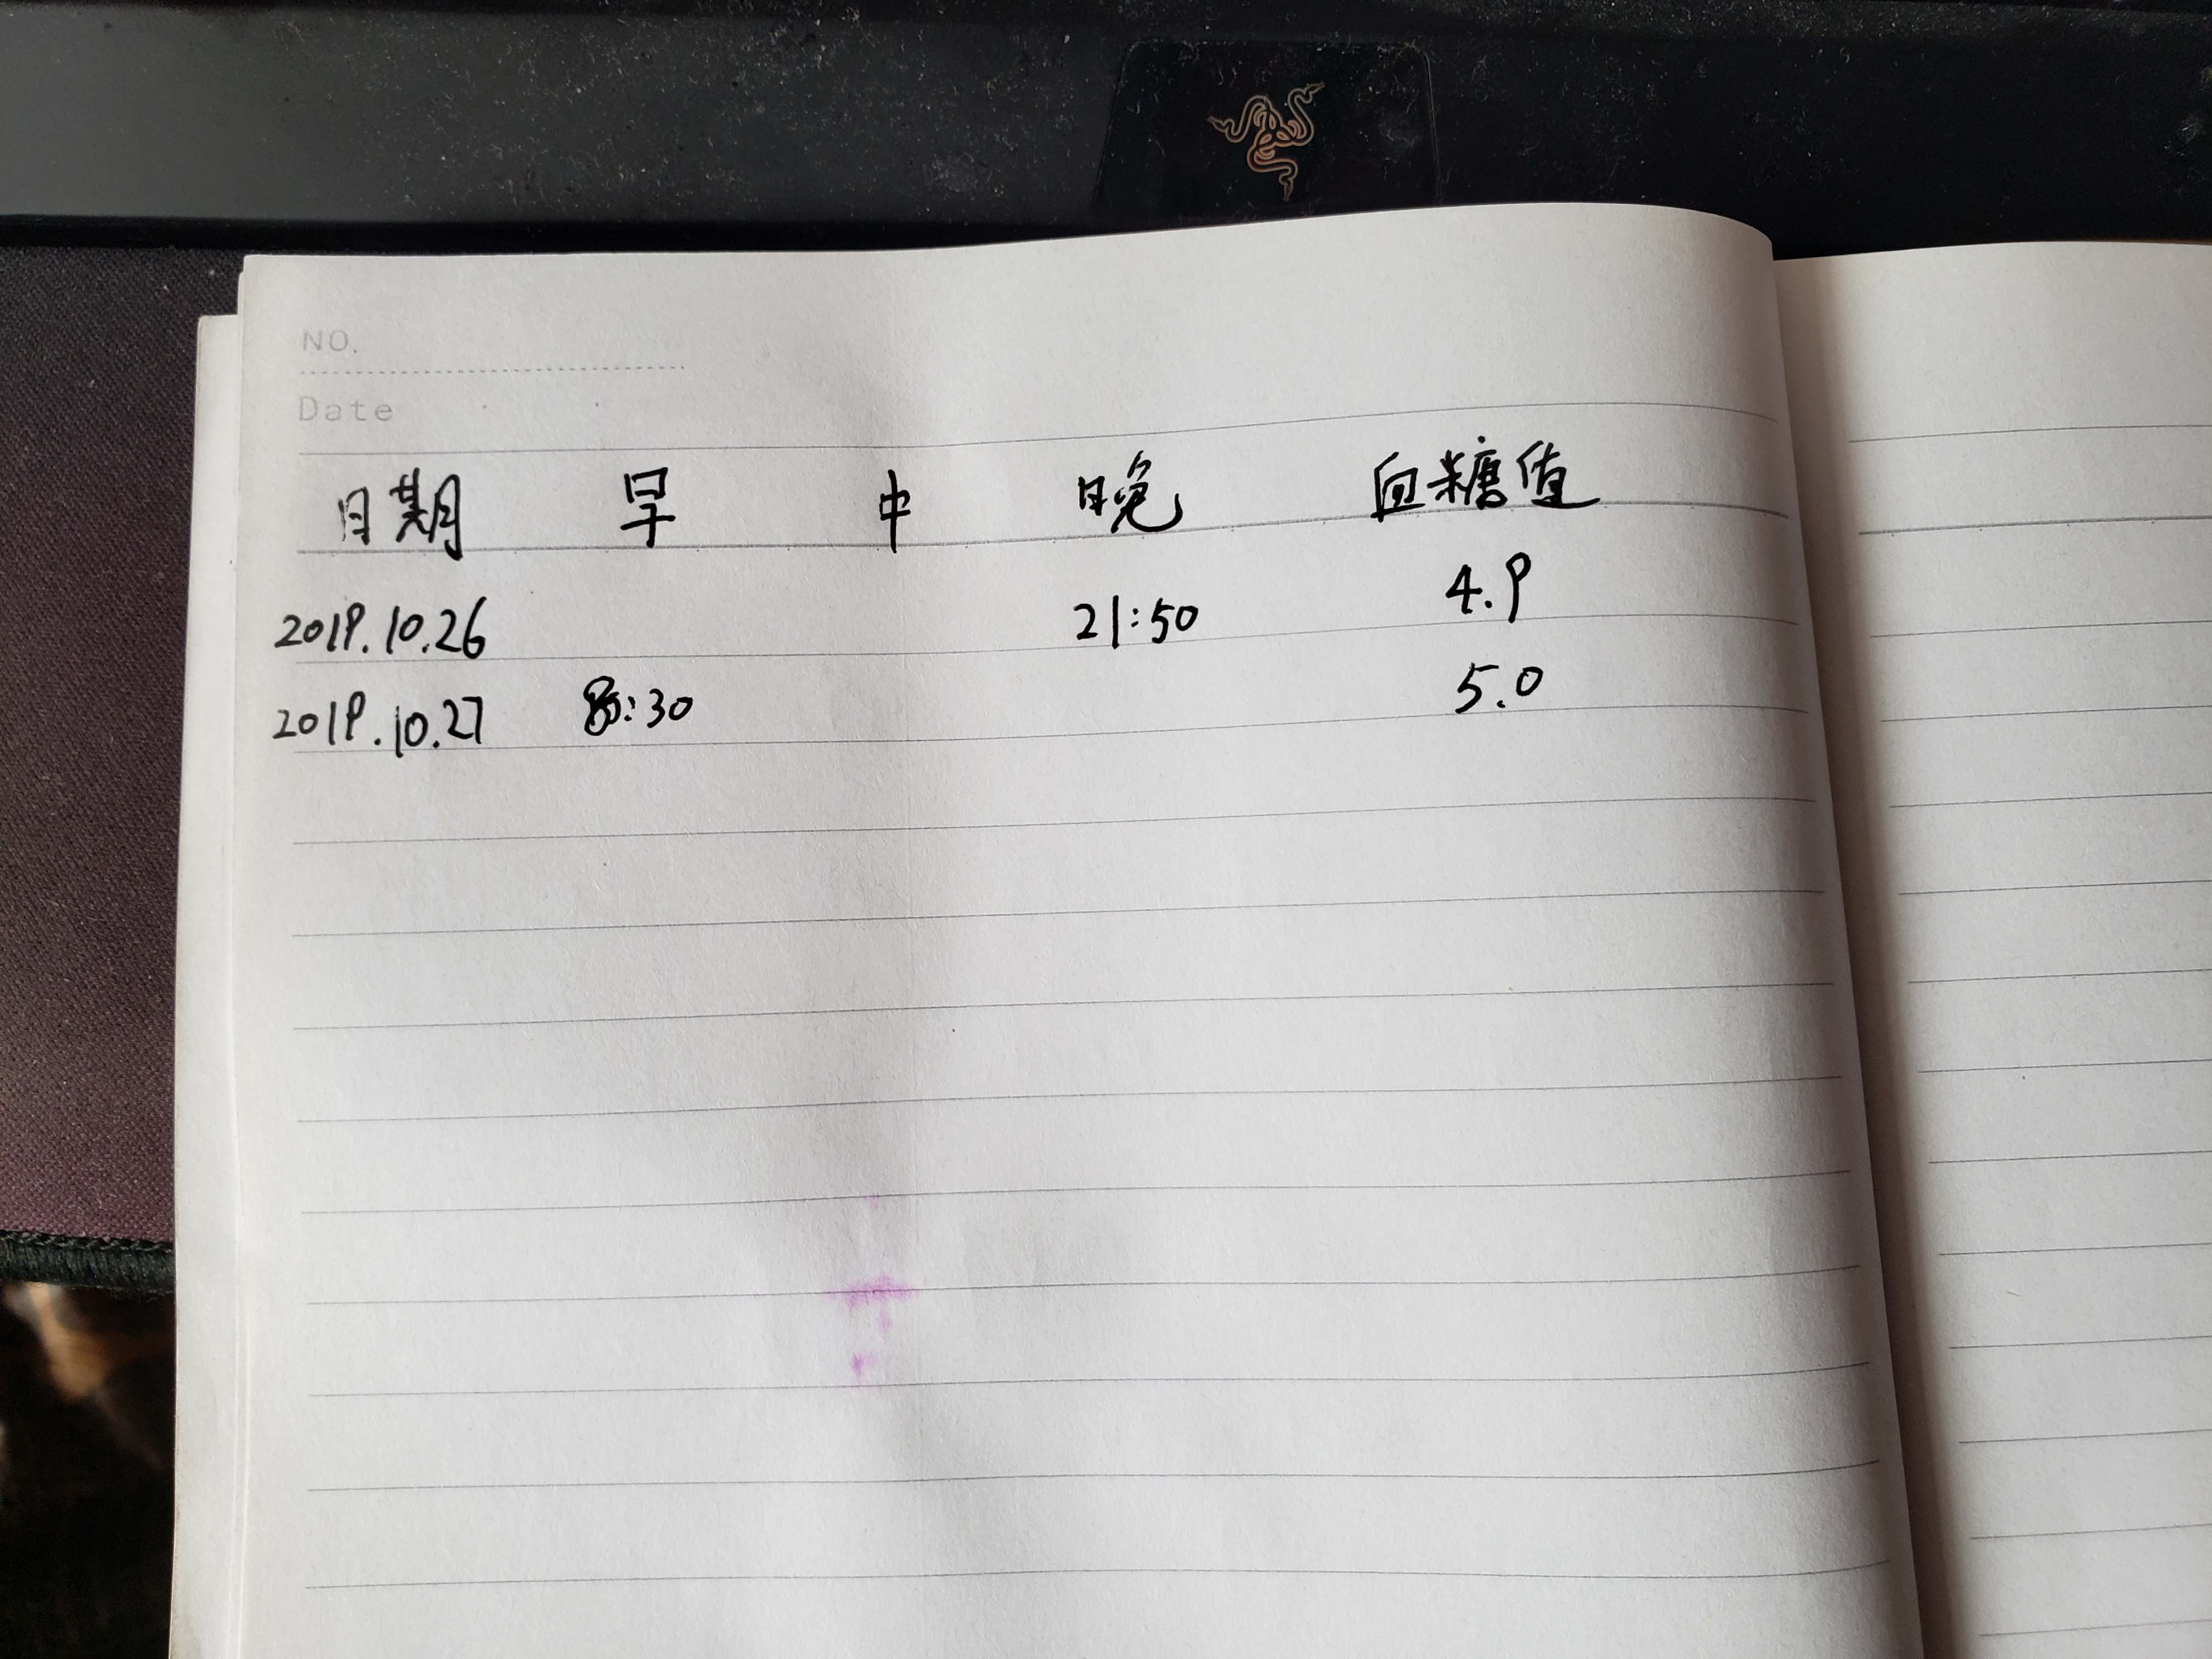 NO.
Date
日期 早 中 晚 血糖值
2019.10.26 21:50 4.9
2019.10.27 8:30 5.0